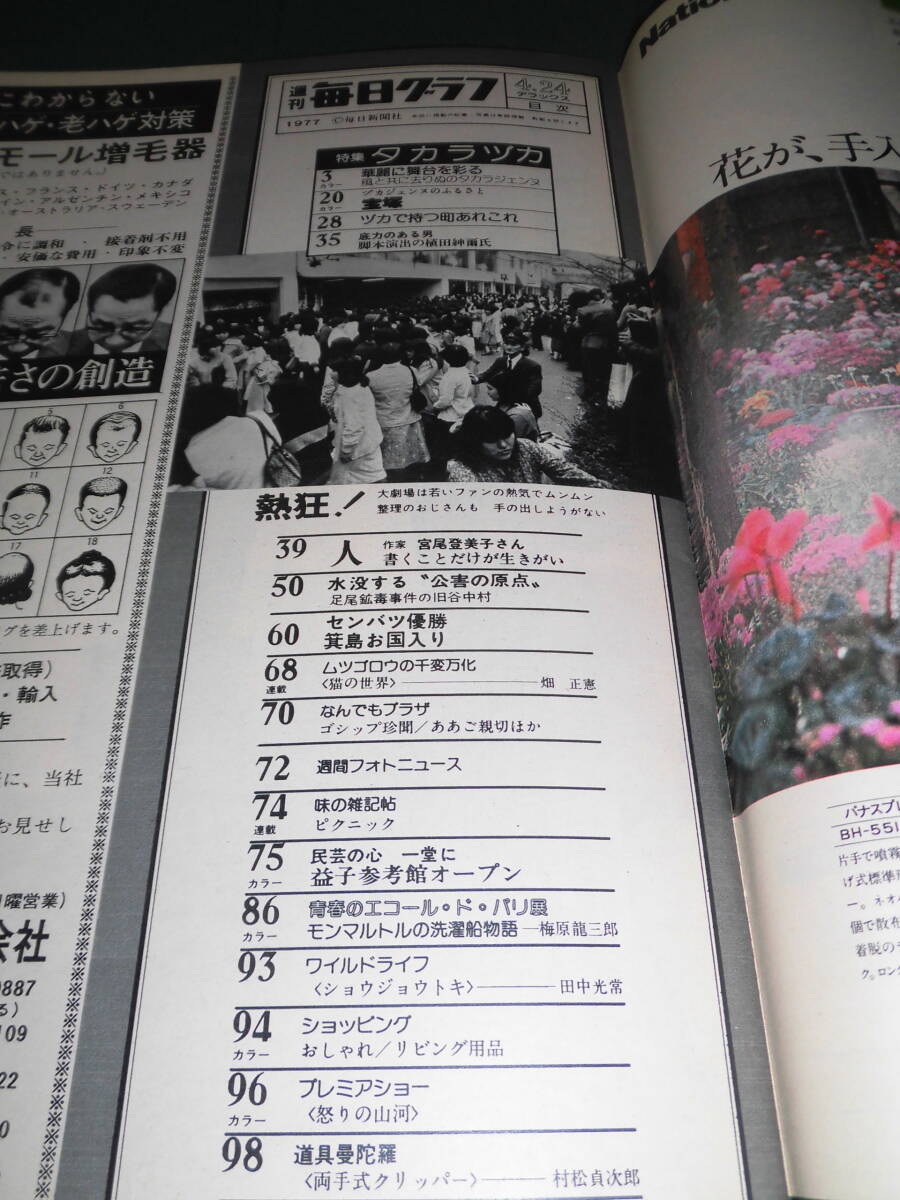 こわからない
ハゲ・老ハゲ対策
モール増毛器
ではありません。)
ス・フランス・ドイツ・カナダ
イン・アルゼンチン・メキシコ
オーストラリア・スウェーデン
長
令に調和・接着剤不用
・安価な費用・印象不変
さの創造
5
6
11
12
17
18
グを差上げます。
取得)
・輸入
作
に、当社
お見せし
曜営業)
会社
0887
る)
109
22
0
週刊
毎日グラフ
4.24
デラックス
目次
1977 ©毎日新聞社
特集 タカラヅカ
3 カラー 華麗に舞台を彩る
風と共に去りぬのタカラジェンヌ
20 カラー ヅカジェンヌのふるさと
宝塚
28 ヅカで持つ町あれこれ
35 底力のある男
脚本演出の植田紳爾氏
熱狂!
大劇場は若いファンの熱気でムンムン
整理のおじさんも 手の出しようがない
39 人 作家 宮尾登美子さん
書くことだけが生きがい
50 水没する〝公害の原点〟
足尾鉱毒事件の旧谷中村
60 センバツ優勝
箕島お国入り
68 連載 ムツゴロウの千変万化
〈猫の世界〉 畑 正憲
70 なんでもプラザ
ゴシップ珍聞/ああご親切ほか
72 週間フォトニュース
74 連載 味の雑記帖
ピクニック
75 カラー 民芸の心 一堂に
益子参考館オープン
86 カラー 青春のエコール・ド・パリ展
モンマルトルの洗濯船物語―梅原龍三郎
93 ワイルドライフ
〈ショウジョウトキ〉 田中光常
94 カラー ショッピング
おしゃれ/リビング用品
96 カラー プレミアショー
〈怒りの山河〉
98 道具曼陀羅
〈両手式クリッパー〉 村松貞次郎
Natio
花が、手入
パナスプレ
BH-551
片手で噴霧
げ式標準
ー。ネオ
個で散布
着脱の
ク。ロン